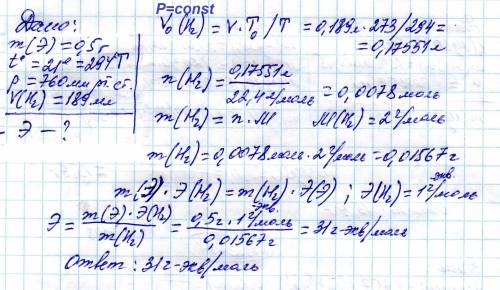 Дано:
m(Э)=0,5г
t°=21°=294°T
P=760мм рт. ст.
V(H₂)=189мл
Э-?
P=const
V₀(H₂) = V·T₀/T = 0,189л·273/294=
=0,17551л
n(H₂)=0,17551л/22,4л/моль=0,0078моль
m(H₂)=n·M M(H₂)=2г/моль
m(H₂)=0,0078моль·2г/моль=0,01567г
m(Э)·Э(H₂)=m(H₂)·Э(Э); Э(H₂)=1г экв/моль
Э=m(Э)·Э(H₂)/m(H₂)=0,5г·1г экв/моль/0,01567г=31г-экв/моль
Ответ: 31г-экв/моль